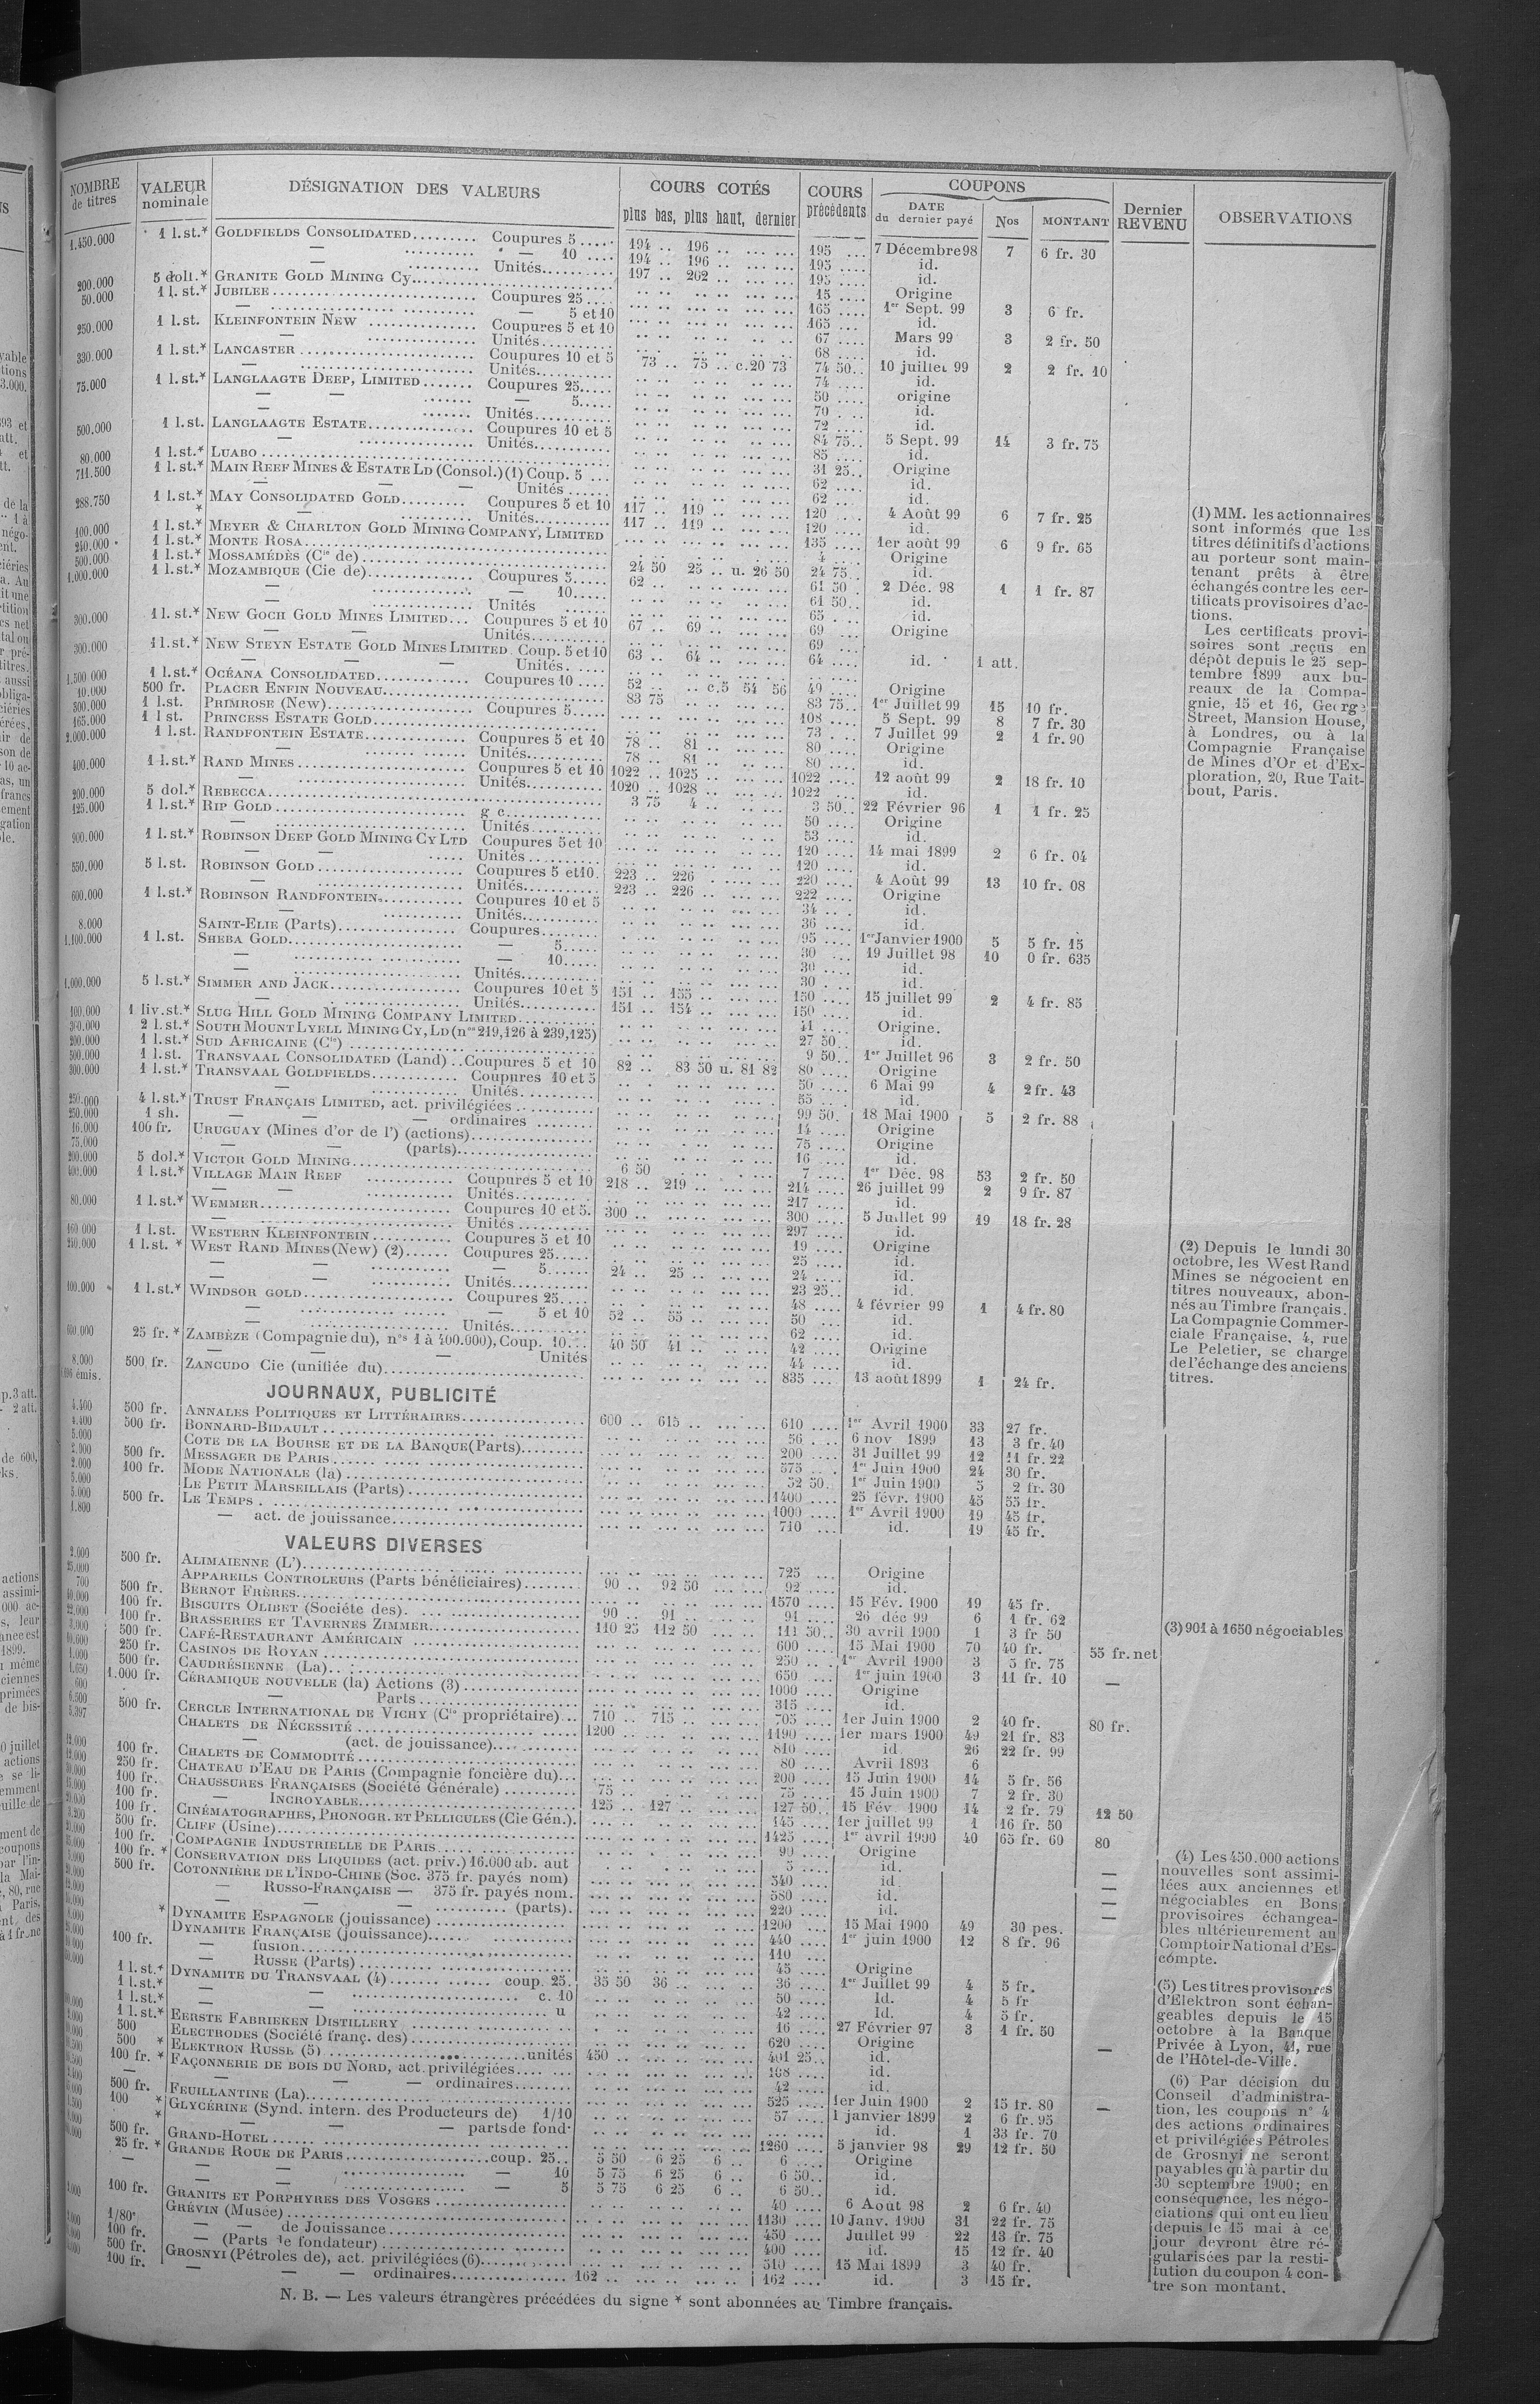 NOMBRE de titres | VALEUR nominale | DÉSIGNATION DES VALEURS | COURS COTÉS plus bas, plus haut, dernier | COURS précédents | COUPONS DATE du dernier payé | Nos | MONTANT | Dernier REVENU | OBSERVATIONS
1.450.000 1 l.st.* GOLDFIELDS CONSOLIDATED......... Coupures 5..... 194 .. 196 .. 195 .... 7 Décembre 98 7 6 fr. 30
— — 10 .... 194 .. 196 .. 195 .... id.
— Unités.......... 197 .. 202 .. 195 .... id.
200.000 5 doll.* GRANITE GOLD MINING Cy.... 15 .... Origine
50.000 1 l.st.* JUBILEE.... Coupures 25.... 165 .... 1er Sept. 99 3 6 fr.
— — 5 et 10 165 .... id.
250.000 1 l.st. KLEINFONTEIN NEW .... Coupures 5 et 10 67 .... Mars 99 3 2 fr. 50
— Unités.... 68 .... id.
330.000 1 l.st.* LANCASTER .... Coupures 10 et 5 73 .. 75 .. c.20 73 74 50.. 10 juillet 99 2 2 fr. 10
— Unités.... 74 .... id.
75.000 1 l.st.* LANGLAAGTE DEEP, LIMITED....... Coupures 25..... 50 .... origine
— — — 5..... 70 .... id.
— Unités.... 72 .... id.
500.000 1 l.st. LANGLAAGTE ESTATE.... Coupures 10 et 5 84 75.. 5 Sept. 99 14 3 fr. 75
— Unités.... 85 .... id.
80.000 1 l.st.* LUABO .... 31 25.. Origine
711.500 1 l.st.* MAIN REEF MINES & ESTATE LD (Consol.)(1) Coup. 5 ... 62 .... id.
— — — Unités ...... 62 .. id.
288.750 1 l.st.* MAY CONSOLIDATED GOLD......... Coupures 5 et 10 117 .. 119 .. 120 .... 4 Août 99 6 7 fr. 25
* — Unités.... 117 .. 119 .. 120 .... id.
100.000 1 l.st.* MEYER & CHARLTON GOLD MINING COMPANY, LIMITED 135 .... 1er août 99 6 9 fr. 65
240.000 1 l.st.* MONTE ROSA.... 4 .... Origine
500.000 1 l.st.* MOSSAMÉDÈS (Cie de).... 24 50 25 .. u. 26 50 24 75.. id.
1.000.000 1 l.st.* MOZAMBIQUE (Cie de).... Coupures 5..... 62 .. 61 50 . 2 Déc. 98 1 1 fr. 87
— — 10..... 61 50.. id.
— Unités ...... 65 .... id.
300.000 1 l.st.* NEW GOCH GOLD MINES LIMITED... Coupures 5 et 10 67 .. 69 .. 69 ... Origine
— Unités.... 69 ...
300.000 1 l.st.* NEW STEYN ESTATE GOLD MINES LIMITED . Coup. 5 et 10 63 .. 64 .. 64 .... id. 1 att.
— — — Unités. ....
1.500.000 1 l.st.* OCÉANA CONSOLIDATED.... Coupures 10 .... 52 .. .. c.5 54 56 49 .... Origine
10.000 500 fr. PLACER ENFIN NOUVEAU.... 83 75 83 75.. 1er Juillet 99 15 10 fr.
300.000 1 l.st. PRIMROSE (New).... Coupures 5..... 108 .... 5 Sept. 99 8 7 fr. 30
165.000 1 l.st. PRINCESS ESTATE GOLD.... 73 ... 7 Juillet 99 2 1 fr. 90
2.000.000 1 l.st. RANDFONTEIN ESTATE.... Coupures 5 et 10 78 .. 81 .. 80 .... Origine
— Unités.... 78 .. 81 .. 80 .... id.
400.000 1 l.st.* RAND MINES.... Coupures 5 et 10 1022 .. 1025 .. 1022 .... 12 août 99 2 18 fr. 10
— Unités.... 1020 .. 1028 .. 1022 .... id.
200.000 5 dol.* REBECCA.... 3 75 4 .. 3 50.. 22 Février 96 1 1 fr. 25
125.000 1 l.st.* RIP GOLD.... g c.... 50 .... Origine
— Unités.... 53 .... id.
900.000 1 l.st.* ROBINSON DEEP GOLD MINING CY LTD Coupures 5 et 10 120 .... 14 mai 1899 2 6 fr. 04
— — Unités.... 120 .... id.
550.000 5 l.st. ROBINSON GOLD.... Coupures 5 et 10. 223 .. 226 .. 220 .... 4 Août 99 13 10 fr. 08
— Unités.... 223 .. 226 .. 222 .... Origine
600.000 1 l.st.* ROBINSON RANDFONTEIN.... Coupures 10 et 5 34 .... id.
— Unités.... 36 .... id.
8.000 SAINT-ELIE (Parts).... Coupures.... 95 .... 1er Janvier 1900 5 5 fr. 15
1.100.000 1 l.st. SHEBA GOLD.... — 5..... 30 ... 19 Juillet 98 10 0 fr. 635
— — 10..... 30 .... id.
— Unités.... 30 .... id.
1.000.000 5 l.st.* SIMMER AND JACK.... Coupures 10 et 5 151 .. 155 .. 150 .... 15 juillet 99 2 4 fr. 85
— Unités.... 151 .. 154 .. 150 .... id.
100.000 1 liv.st.* SLUG HILL GOLD MINING COMPANY LIMITED.... 41 .... Origine.
300.000 2 l.st.* SOUTH MOUNT LYELL MINING CY, LD (nos 219,126 à 239,125) 27 50.. id.
200.000 1 l.st.* SUD AFRICAINE (Cie).... 9 50.. 1er Juillet 96 3 2 fr. 50
500.000 1 l.st. TRANSVAAL CONSOLIDATED (Land) .. Coupures 5 et 10 82 .. 83 50 u. 81 82 80 .... Origine
300.000 1 l.st.* TRANSVAAL GOLDFIELDS.... Coupures 10 et 5 50 .... 6 Mai 99 4 2 fr. 43
— Unités.... 55 .... id.
250.000 4 l.st.* TRUST FRANÇAIS LIMITED, act. privilégiées.... 99 50. 18 Mai 1900 5 2 fr. 88
250.000 1 sh. — — — ordinaires .... 14 .... Origine
16.000 100 fr. URUGUAY (Mines d'or de l') (actions).... 75 .... Origine
75.000 — — (parts).... 16 .... id.
200.000 5 dol.* VICTOR GOLD MINING.... 6 50 7 .... 1er Déc. 98 53 2 fr. 50
400.000 1 l.st.* VILLAGE MAIN REEF .... Coupures 5 et 10 218 .. 219 .. 214 .... 26 juillet 99 2 9 fr. 87
— — Unités.... 217 .... id.
80.000 1 l.st.* WEMMER.... Coupures 10 et 5. 300 .. 300 .... 5 Juillet 99 19 18 fr. 28
— Unités.... 297 .... id.
160.000 1 l.st. WESTERN KLEINFONTEIN.... Coupures 5 et 10 19 .... Origine
240.000 1 l.st. * WEST RAND MINES (New) (2)...... Coupures 25..... 25 .... id.
— — — 5...... 24 .. 25 .. 24 .... id.
— — Unités.... 23 25.. id.
100.000 1 l.st.* WINDSOR GOLD.... Coupures 25.... 48 .... 4 février 99 1 4 fr. 80
— — 5 et 10 52 .. 55 .. 50 ... id.
— Unités.... 62 .... id.
600.000 25 fr.* ZAMBÈZE (Compagnie du), nos 1 à 400.000), Coup. 10... 40 50 41 .. 42 .... Origine
— — — Unités 44 .... id.
8.000 500 fr. ZANCUDO Cie (unifiée du).... 835 ... 13 août 1899 1 24 fr.
JOURNAUX, PUBLICITÉ
4.400 500 fr. ANNALES POLITIQUES ET LITTÉRAIRES.... 600 .. 615 .. 610 .... 1er Avril 1900 33 27 fr.
4.400 500 fr. BONNARD-BIDAULT.... 56 .... 6 nov 1899 13 3 fr. 40
5.000 COTE DE LA BOURSE ET DE LA BANQUE (Parts).... 200 .... 31 Juillet 99 12 11 fr. 22
2.000 500 fr. MESSAGER DE PARIS.... 575 ... 1er Juin 1900 24 30 fr.
2.000 100 fr. MODE NATIONALE (la).... 52 50. 1er Juin 1900 5 2 fr. 30
5.000 LE PETIT MARSEILLAIS (Parts).... 1400 .... 25 févr. 1900 45 55 fr.
3.000 500 fr. LE TEMPS.... 1000 .... 1er Avril 1900 19 45 fr.
1.800 — act. de jouissance.... 710 ... id. 19 45 fr.
VALEURS DIVERSES
2.000 500 fr. ALIMAIENNE (L').... 725 .... Origine
25.000 APPAREILS CONTROLEURS (Parts bénéficiaires)....... 90 .. 92 50 92 .... id.
700 500 fr. BERNOT FRÈRES.... 1570 .... 15 Fév. 1900 19 45 fr.
100 fr. BISCUITS OLIBET (Société des).... 90 .. 91 .. 91 .... 26 déc 99 6 1 fr. 62
100 fr. BRASSERIES ET TAVERNES ZIMMER.... 110 25 112 50 111 50.. 30 avril 1900 1 3 fr 50
500 fr. CAFÉ-RESTAURANT AMÉRICAIN .... 600 .... 15 Mai 1900 70 40 fr. 55 fr. net
250 fr. CASINOS DE ROYAN .... 250 ... 1er Avril 1900 3 5 fr. 75
1.000 500 fr. CAUDRÉSIENNE (La)... 650 .... 1er juin 1900 3 11 fr. 10 —
1.650 1.000 fr. CÉRAMIQUE NOUVELLE (la) Actions (3).... 1000 .... Origine
600 — Parts.... 315 .... id.
6.500 500 fr. CERCLE INTERNATIONAL DE VICHY (Cie propriétaire)... 710 .. 715 .. 705 .... 1er Juin 1900 2 40 fr. 80 fr.
5.397 CHALETS DE NÉCESSITÉ.... 1200 1190 .... 1er mars 1900 49 21 fr. 83
— (act. de jouissance).... 810 .... id 26 22 fr. 99
100 fr. CHALETS DE COMMODITÉ.... 80 .... Avril 1893 6
250 fr. CHATEAU D'EAU DE PARIS (Compagnie foncière du)... 200 .... 15 Juin 1900 14 5 fr. 56
100 fr. CHAUSSURES FRANÇAISES (Société Générale).... 75 .. 75 .... 15 Juin 1900 7 2 fr. 30
100 fr. — INCROYABLE.... 125 .. 127 .. 127 50.. 15 Fév. 1900 14 2 fr. 79 12 50
100 fr. CINÉMATOGRAPHES, PHONOGR. ET PELLICULES (Cie Gén.). 145 .... 1er juillet 99 1 16 fr. 50
500 fr. CLIFF (Usine).... 1425 .... 1er avril 1900 40 65 fr. 60 80
100 fr. COMPAGNIE INDUSTRIELLE DE PARIS.... 90 .... Origine
100 fr. * CONSERVATION DES LIQUIDES (act. priv.) 16.000 ab. aut 5 .... id. —
500 fr. COTONNIÈRE DE L'INDO-CHINE (Soc. 375 fr. payés nom) 540 .... id. —
— RUSSO-FRANÇAISE — 375 fr. payés nom. 580 .... id. —
— — (parts). 220 .... id. —
* DYNAMITE ESPAGNOLE (jouissance).... 1200 .... 15 Mai 1900 49 30 pes.
DYNAMITE FRANÇAISE (jouissance).... 440 .... 1er juin 1900 12 8 fr. 96
100 fr. — fusion.... 110 ....
— RUSSE (Parts).... 45 .... Origine
1 l.st.* DYNAMITE DU TRANSVAAL (4).... coup. 25. 35 50 36 .. 36 .... 1er Juillet 99 4 5 fr.
1 l.st.* — — c. 10 50 .... Id. 4 5 fr
1 l.st.* — — u 42 .... Id. 4 5 fr.
1 l.st.* EERSTE FABRIEKEN DISTILLERY.... 16 .... 27 Février 97 3 1 fr. 50
500 ELECTRODES (Société franç. des).... 620 .... Origine
500 * ELEKTRON RUSSE (5).... unités 450 .. 401 25.. id. —
100 fr. * FAÇONNERIE DE BOIS DU NORD, act. privilégiées.... 168 .... id.
— — — ordinaires.... 42 .... id.
500 fr. FEUILLANTINE (La).... 525 .... 1er Juin 1900 2 15 fr. 80 —
100 * GLYCÉRINE (Synd. intern. des Producteurs de) 1/10 57 .... 1 janvier 1899 2 6 fr. 95
* — — — parts de fond. id. 1 33 fr. 70
500 fr. GRAND-HOTEL.... 1260 .... 5 janvier 98 29 12 fr. 50
25 fr. * GRANDE ROUE DE PARIS.... coup. 25.. 5 50 6 25 6 .. 6 .... Origine
— — — 10 5 75 6 25 6 .. 6 50.. id.
— — — 5 5 75 6 25 6 .. 6 50.. id.
100 fr. GRANITS ET PORPHYRES DES VOSGES.... 40 .... 6 Août 98 2 6 fr. 40
GRÉVIN (Musée).... 1130 .... 10 Janv. 1900 31 22 fr. 75
1/80e — — de Jouissance.... 450 .... Juillet 99 22 13 fr. 75
100 fr. — (Parts de fondateur).... 400 .... id. 15 12 fr. 40
500 fr. GROSNYI (Pétroles de), act. privilégiées (6).... 510 .... 15 Mai 1899 3 40 fr.
100 fr. — — ordinaires.... 162 .. 162 .... id. 3 15 fr.
(1) MM. les actionnaires
sont informés que les
titres définitifs d'actions
au porteur sont main-
tenant prêts à être
échangés contre les cer-
tificats provisoires d'ac-
tions.
Les certificats provi-
soires sont reçus en
dépôt depuis le 25 sep-
tembre 1899 aux bu-
reaux de la Compa-
gnie, 15 et 16, George
Street, Mansion House,
à Londres, ou à la
Compagnie Française
de Mines d'Or et d'Ex-
ploration, 20, Rue Tait-
bout, Paris.
(2) Depuis le lundi 30
octobre, les West Rand
Mines se négocient en
titres nouveaux, abon-
nés au Timbre français.
La Compagnie Commer-
ciale Française, 4, rue
Le Peletier, se charge
de l'échange des anciens
titres.
(3) 901 à 1650 négociables
(4) Les 450.000 actions
nouvelles sont assimi-
lées aux anciennes et
négociables en Bons
provisoires échangea-
bles ultérieurement au
Comptoir National d'Es-
compte.
(5) Les titres provisoires
d'Elektron sont échan-
geables depuis le 15
octobre à la Banque
Privée à Lyon, 41, rue
de l'Hôtel-de-Ville.
(6) Par décision du
Conseil d'administra-
tion, les coupons n° 4
des actions ordinaires
et privilégiées Pétroles
de Grosnyi ne seront
payables qu'à partir du
30 septembre 1900; en
conséquence, les négo-
ciations qui ont eu lieu
depuis le 15 mai à ce
jour devront être ré-
gularisées par la resti-
tution du coupon 4 con-
tre son montant.
N. B. — Les valeurs étrangères précédées du signe * sont abonnées au Timbre français.